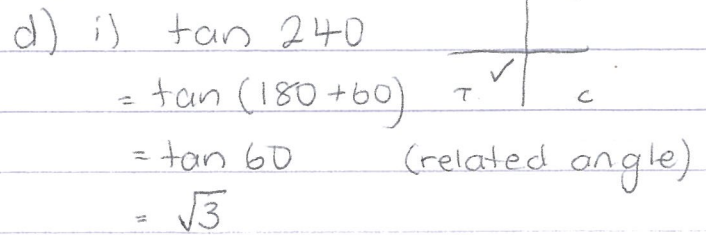 d) i) tan 240
= tan (180 + 60) T ✓ C
= tan 60 (related angle)
= √3